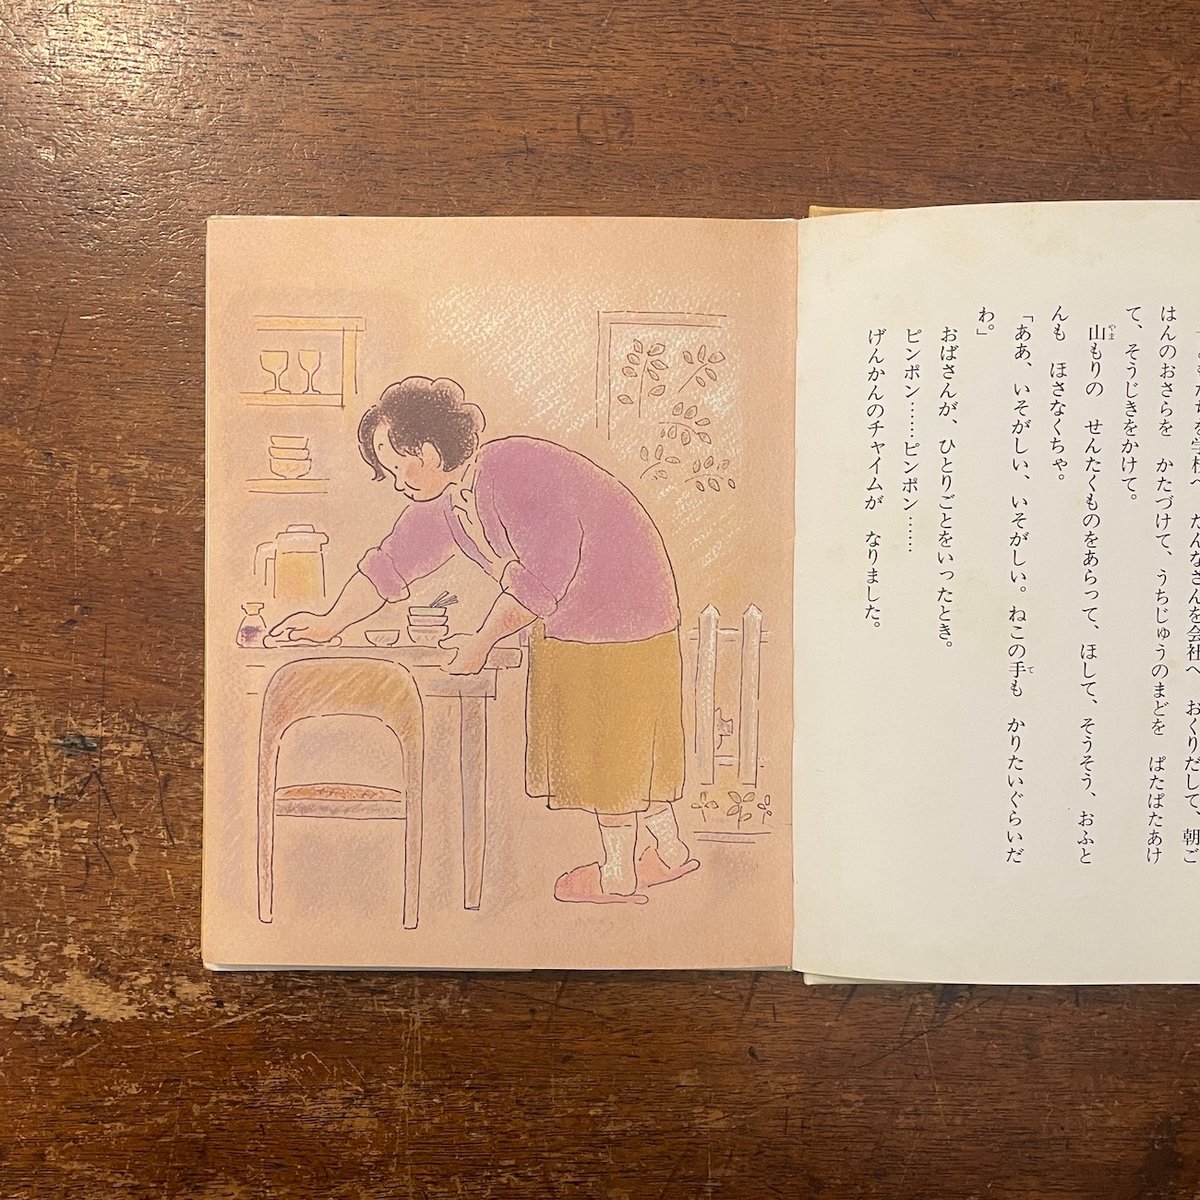 を学校へ だんなさんを会社へ おくりだして、朝ご
はんのおさらを かたづけて、うちじゅうのまどを ぱたぱたあけ
て、そうじきをかけて。
山もりの せんたくものをあらって、ほして、そうそう、おふと
んも ほさなくちゃ。
「ああ、いそがしい、いそがしい。ねこの手も かりたいぐらいだ
わ。」
おばさんが、ひとりごとをいったとき。
ピンポン……ピンポン……
げんかんのチャイムが なりました。